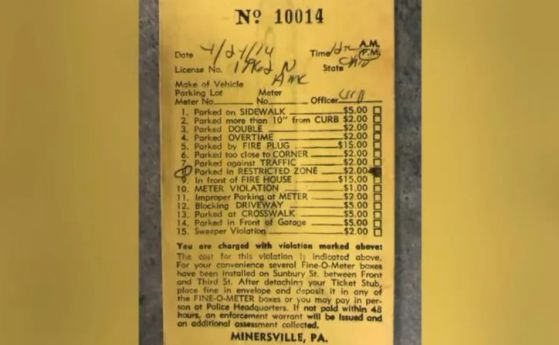 No 10014
Date 4/24/74 Time 12 A.M.
P.M.
License No. 1962 N State Ohio
Make of Vehicle AMC
Parking Lot Meter
Meter No. No. Officer
1. Parked on SIDEWALK $5.00
2. Parked more than 10" from CURB $2.00
3. Parked DOUBLE $2.00
4. Parked OVERTIME $2.00
5. Parked by FIRE PLUG $15.00
6. Parked too close to CORNER $2.00
7. Parked against TRAFFIC $2.00
Parked in RESTRICTED ZONE $2.00
9. In front of FIRE HOUSE $15.00
10. METER VIOLATION $1.00
11. Improper Parking at METER $2.00
12. Blocking DRIVEWAY $5.00
13. Parked at CROSSWALK $5.00
14. Parked in Front of Garage $5.00
15. Sweeper Violation $2.00
You are charged with violation marked above:
The cost for this violation is indicated above.
For your convenience several Fine-O-Meter boxes
have been installed on Sunbury St. between Front
and Third St. After detaching your Ticket Stub,
place fine in envelope and deposit it in any of
the FINE-O-METER boxes or you may pay in per-
son at Police Headquarters. If not paid within 48
hours, an enforcement warrant will be issued and
an additional assessment collected.
MINERSVILLE, PA.